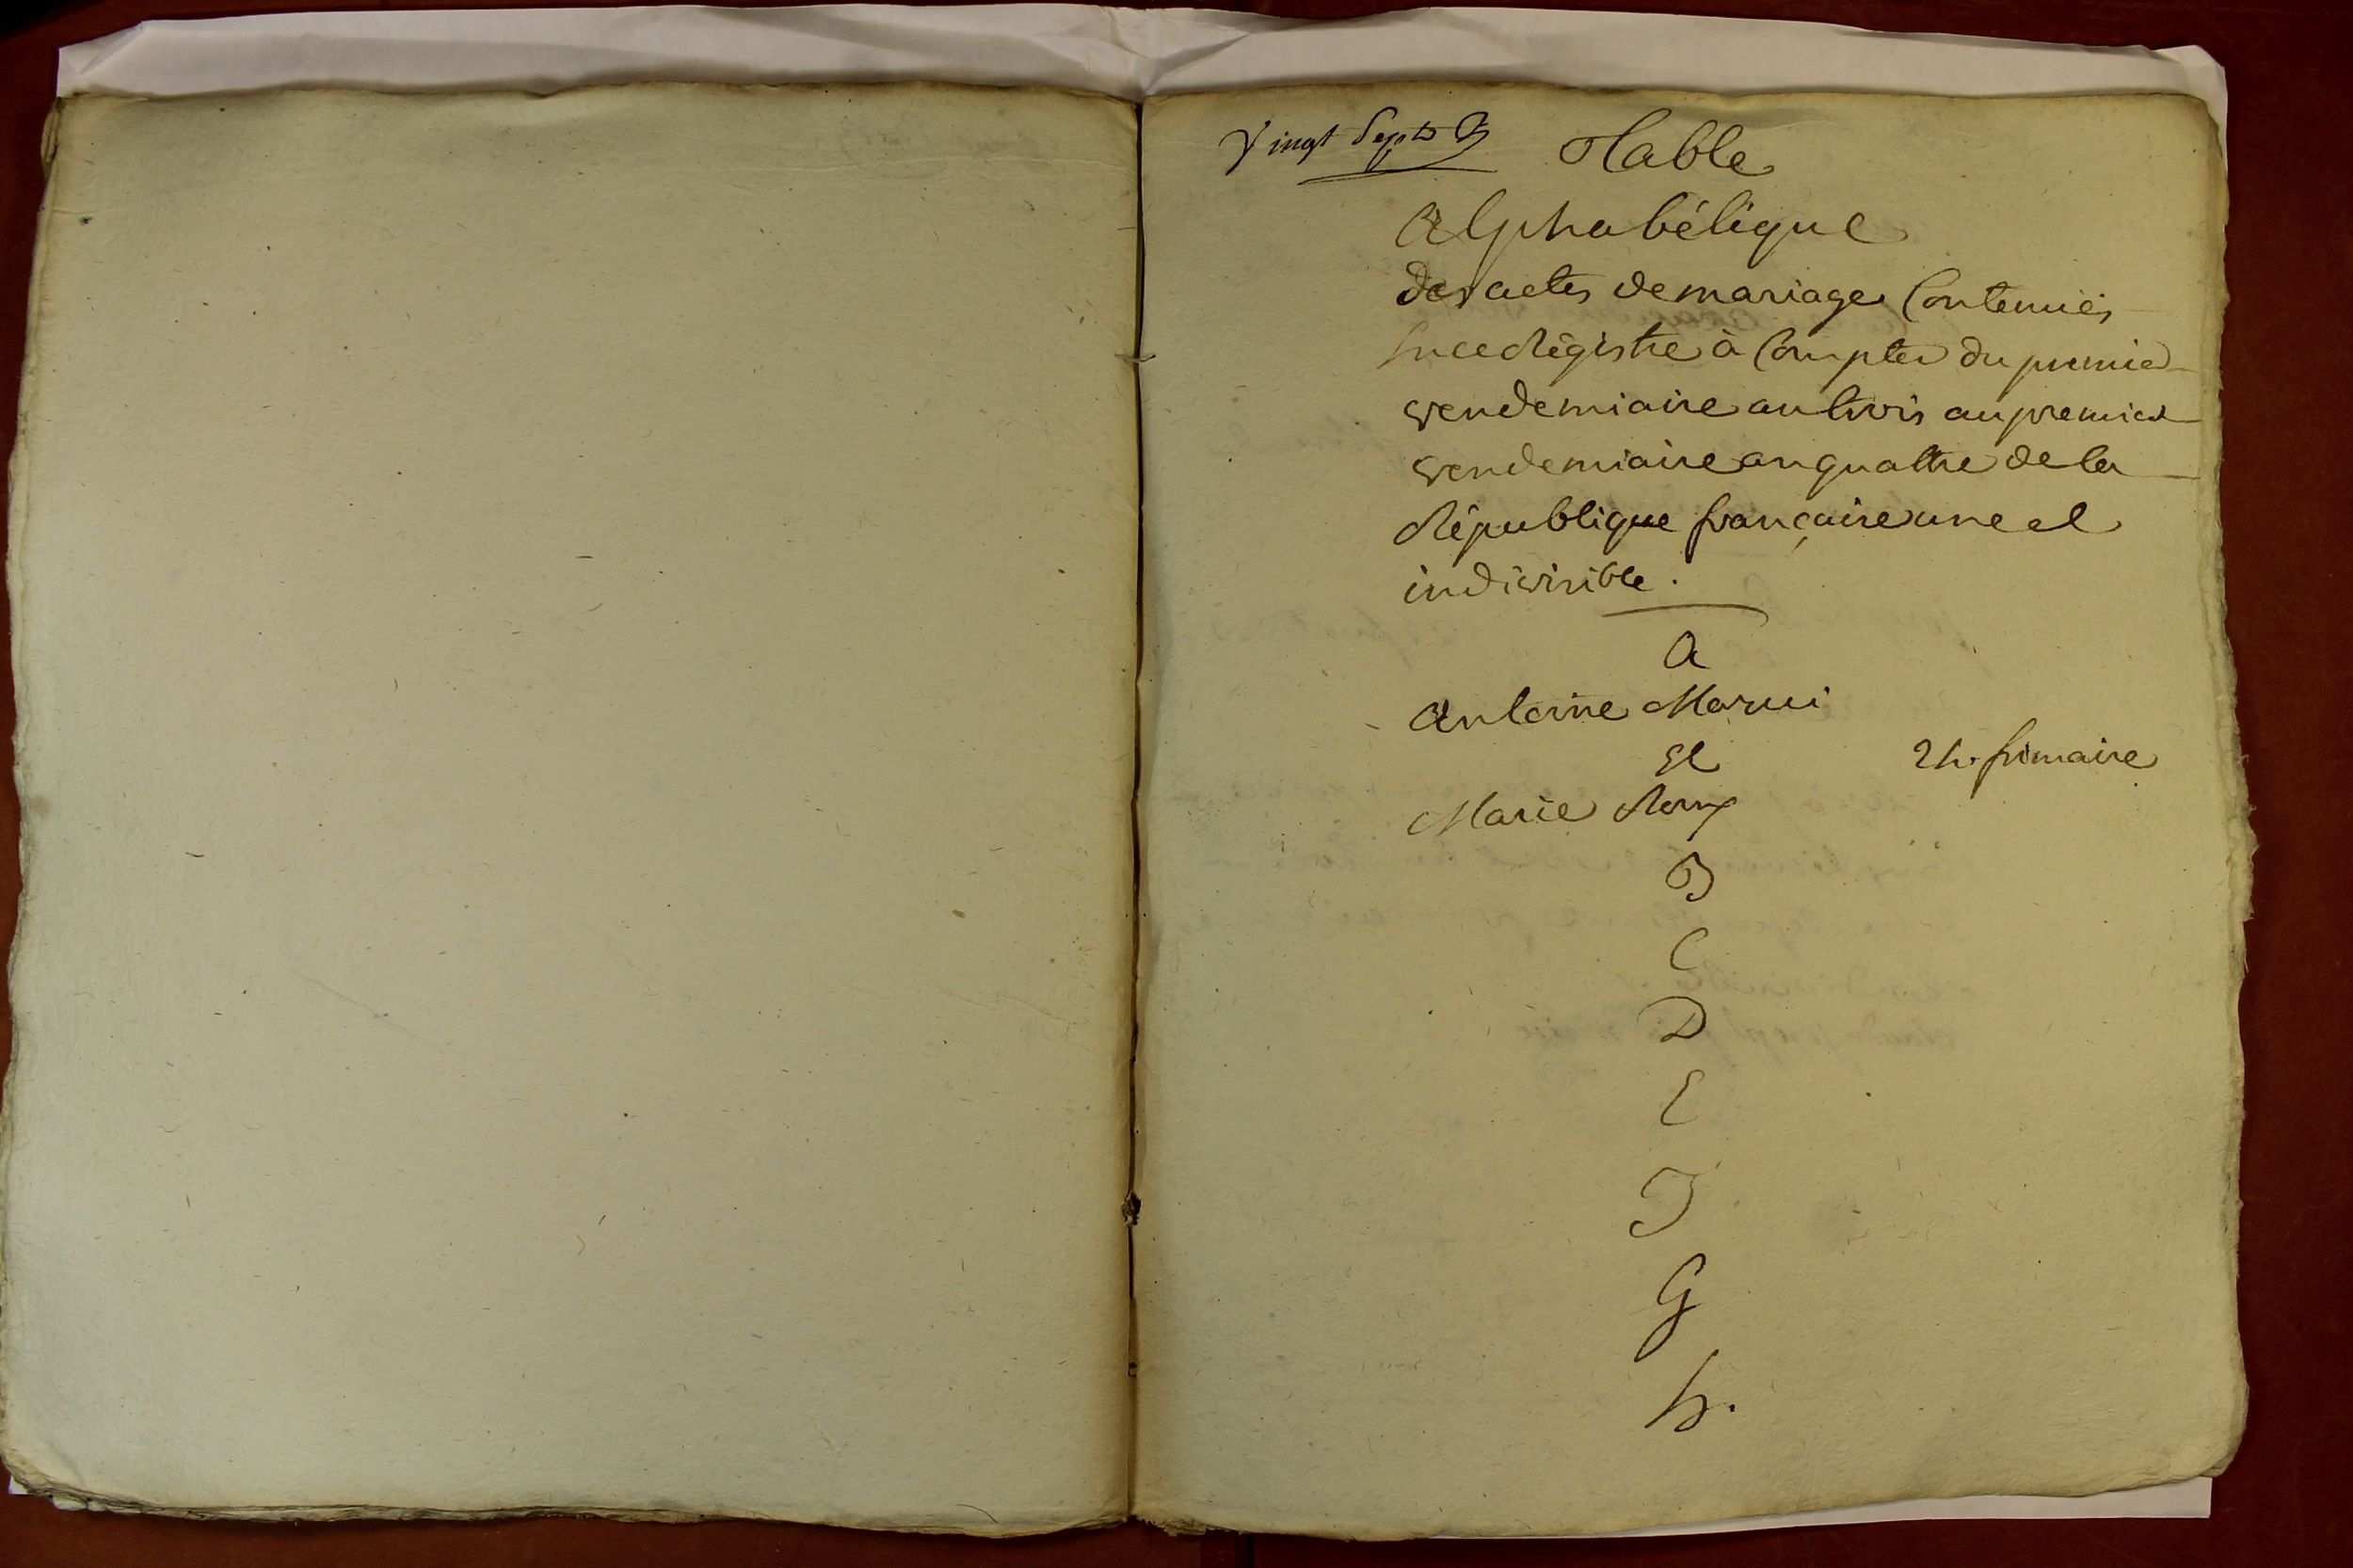 Vingt Sept
Table
Alphabétique
des actes de mariage Contenues
Sur ce Régistre à Compter du premier
vendemiaire an trois au premier
vendemiaire an quattre de la
République française une et
indivisible.
A
Antoine
et
24. frimaire
Marie Roux
B
C
D
E
F
G
h.